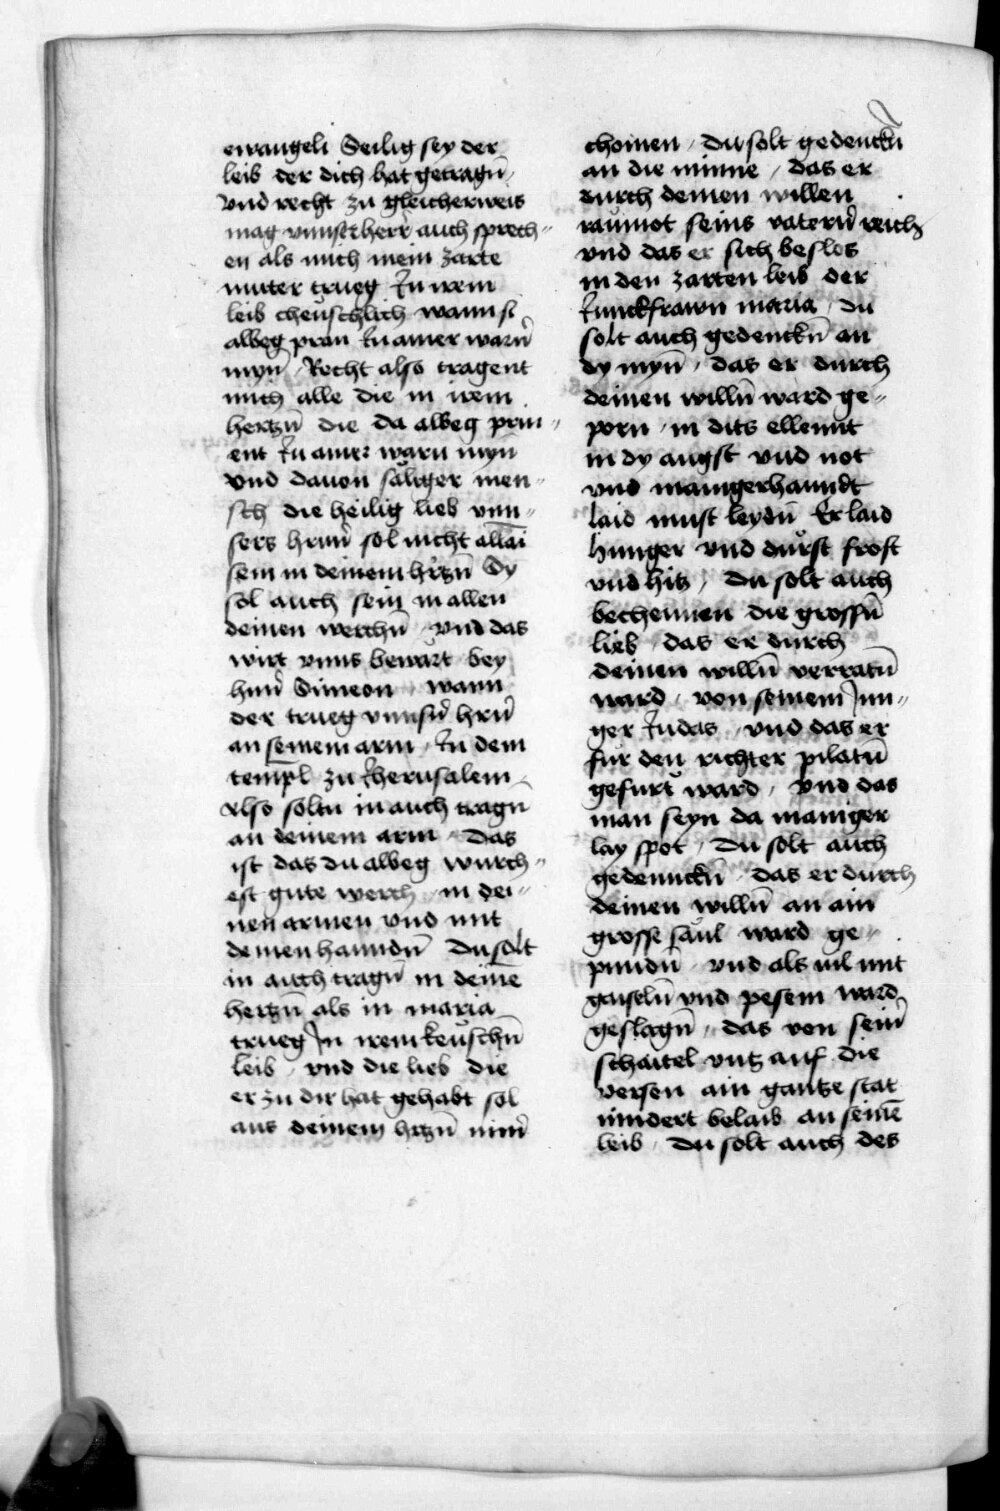 ewangeli Seilig sey der
leib der dich hat getragn̄
vnd recht zu gleicherweis
mag vnnser herr auch sprech-
en als mich mein zarte
muter trueg In irem
leib cheuschlich wann si
albeg pran In amer warn̄
myn̄ Recht also tragent
mich alle die in irem
hertzn̄ die da albeg prin-
ent In amer warn myn̄
vnd dauon säliger men-
sch die heilig lieb vnn-
sers hernn̄ sol nicht allai
sein in deinem hertzn̄ Sy
sol auch sein in allen
deinen werchn̄ vnd das
wirt vnns bewart bey
hern̄ Simeon wann
der trueg vnnsern̄ hern̄
an seinem arm In dem
tempel zu Iherusalem
Also soltu in auch tragn̄
an deinem arm Das
ist das du albeg wurch-
est gute werch in dei-
nen armen vnd mit
deinen hanndn̄ Du solt
in auch tragn̄ in deinē
hertzn̄ als in maria
trueg In irem keuschn̄
leib vnd die lieb die
er zu dir hat gehabt sol
aus deinem hertzn̄ nim̄
chomen Du solt gedenckn̄
an die minne das er
durch deinen willen
raumot seins vatern̄ reich
vnd das er sich beslos
in den zarten leib der
Iunckfrawn maria Du
solt auch gedenckn̄ an
dy myn̄ das er durch
deinen willn̄ ward ge-
porn in dits ellennt
in dy angst vnd not
vnd manigerhanndt
laid must leydn̄ Er laid
hunger vnd durst frost
vnd hitz Du solt auch
bechennen die grossn̄
lieb das er durch
deinen willn̄ verratn̄
ward von seinem Iun-
ger Iudas vnd das er
für den richter pilatū
gefurt ward vnd das
man seyn da maniger
lay spot Du solt auch
gedennckn̄ das er durch
deinen willn̄ an ain
grosse saul ward ge-
pundn̄ vnd als uil mit
gaiseln̄ vnd pesem ward
geslagn̄ das von sein̄
schaitel vntz auf die
versen ain gantze stat
nindert belaib an seinē
leib Du solt auch des